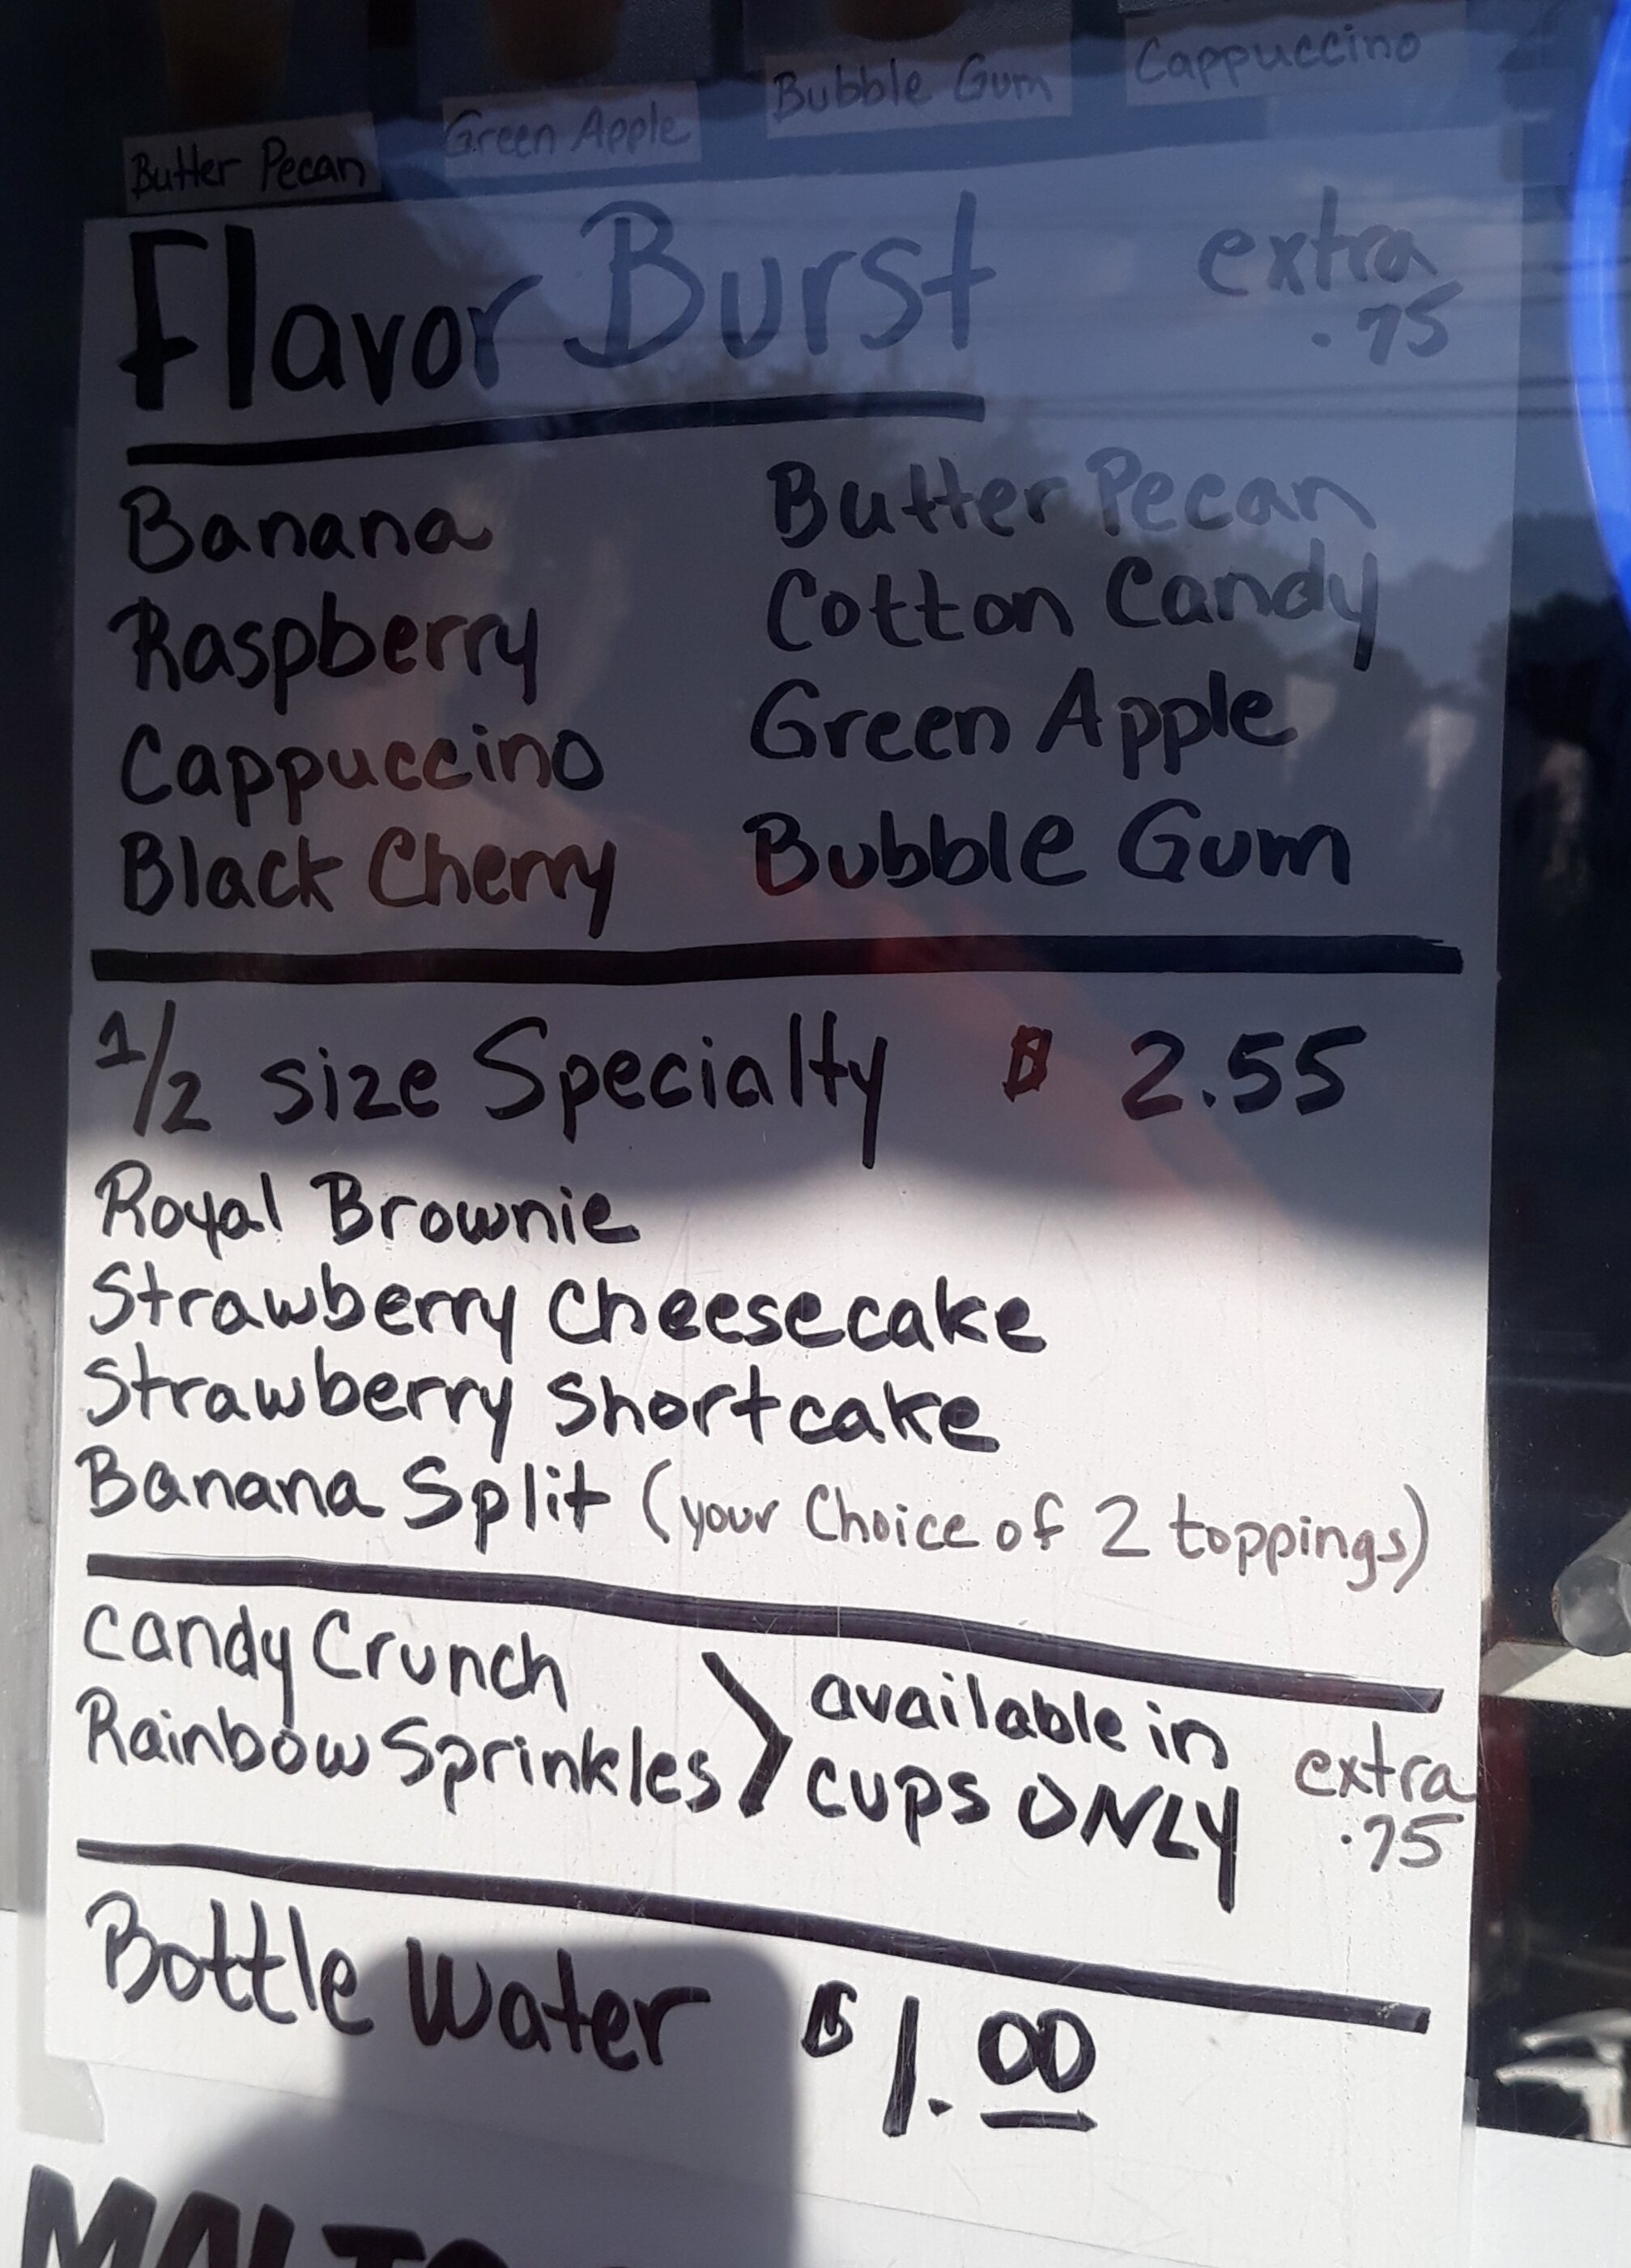 Butter Pecan
Green Apple
Bubble Gum
Cappuccino
Flavor Burst
extra
.75
Banana
Raspberry
Cappuccino
Black Cherry
Butter Pecan
Cotton Candy
Green Apple
Bubble Gum
1/2 size Specialty $ 2.55
Royal Brownie
Strawberry Cheesecake
Strawberry Shortcake
Banana Split (your Choice of 2 toppings)
Candy Crunch
Rainbow Sprinkles
available in
cups ONLY
extra
.75
Bottle Water $1.00